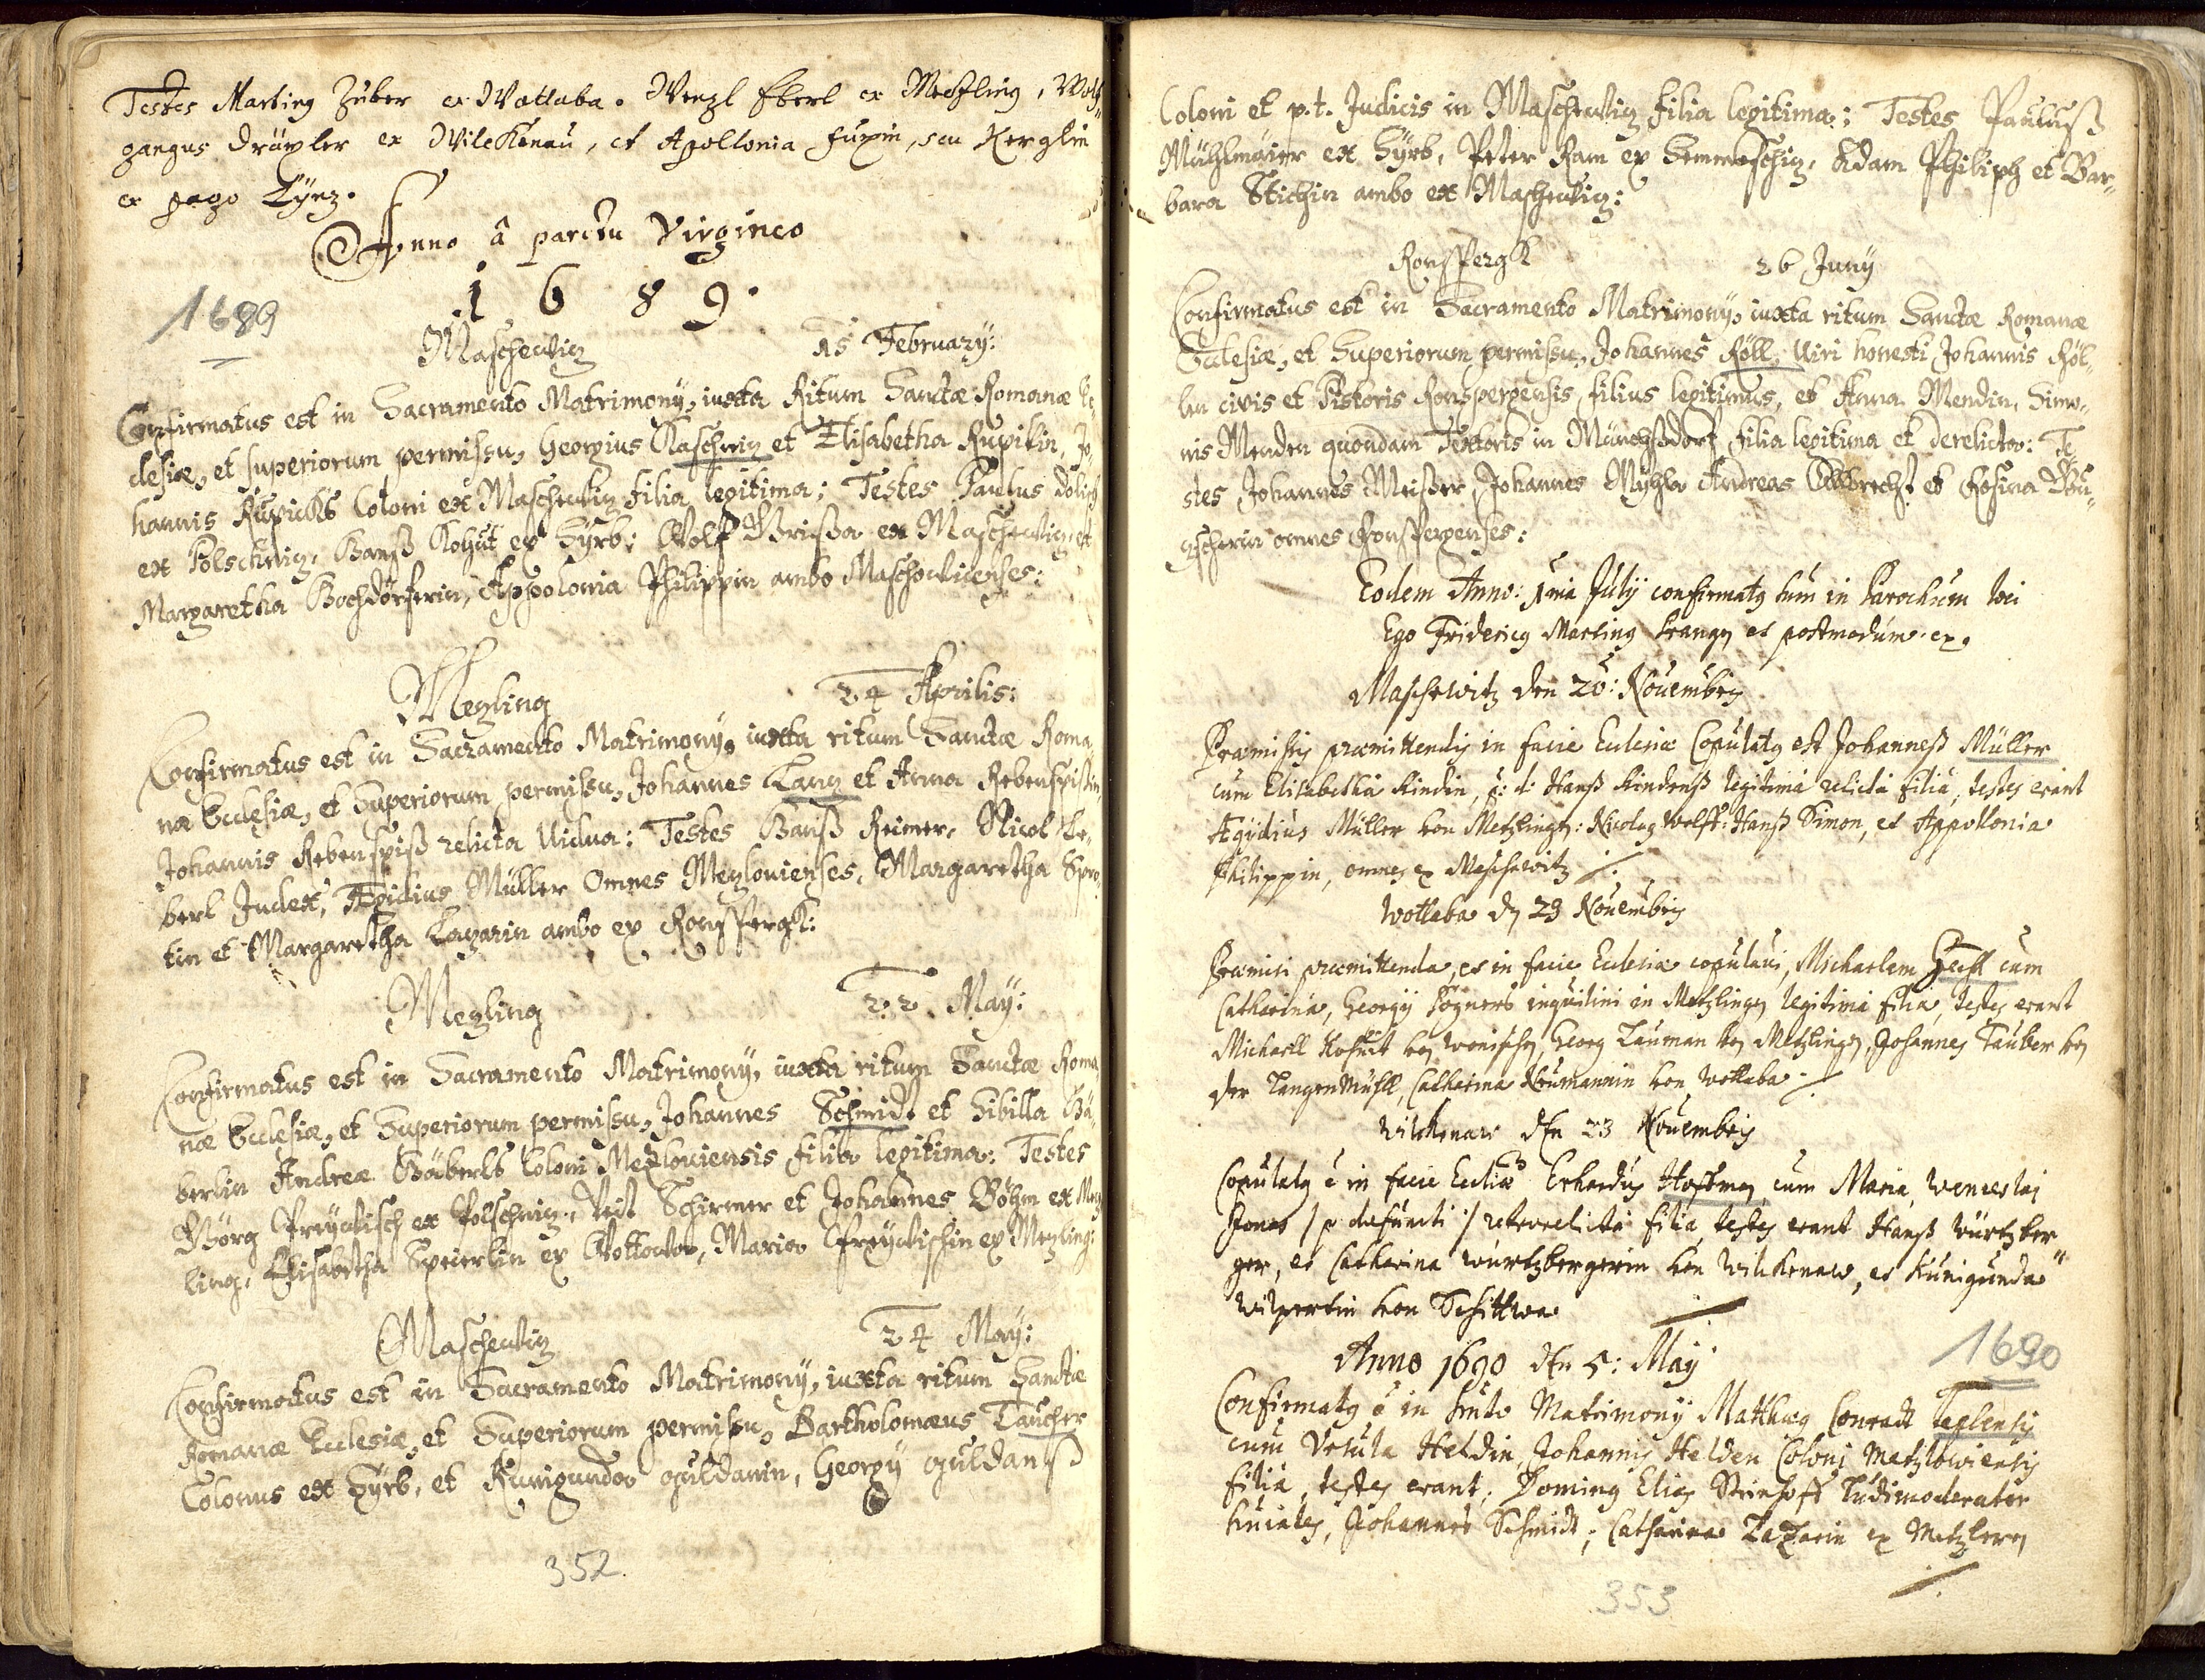 Testes Marting Zuber ex Wottaba. Wenzl Eberl ex Mezling, Wolf,,
gangus Dräxler ex WilcKenau, et Apollonia Fuxin, seu Kerglin
ex pago Zÿrz.
Anno â partu Virgineo
1689.
1689
Maschewitz 15 February:
Confirmatus est in Sacramento Matrimony, iuxta Ritum Sanctæ Romanæ Ec,,
clesiæ, et superiorum permissu, Georgius Raschwiz et Elisabetha Rupikin, Jo,,
hannis Rupicks Coloni ex Maschewitz filia legitima; Testes Paulus
ex Polschwiz, Hanß Kohut ex Sÿrb; Wolf ex Maschewitz, et
Margaretha Bochdörferin, Appolonia Philippin ambo Maschowicenses:
Mezling 24 Aprilis:
Confirmatus est in Sacramento Matrimony, iuxta ritum Sanctæ Roma,,
næ Ecclesiæ, et Superiorum permissu, Johannes Lang et Anna Rebenspißin,
Johannis Rebenspiß relicta Vidua: Testes Hanß Reimer, Nicol He,,
berl Judex, Ægidius Müller Omnes Mezlovienses, Margaretha
tin et Margaretha Lazarin ambo ex RonsPergk:
Mezling 22 May:
Confirmatus est in Sacramento Matrimony, iuxta ritum Sanctæ Roma,,
næ Ecclesiæ, et Superiorum permissu, Johannes Schmidt et Sibilla Bä,,
berlin Andreæ Bäberls Coloni Mezloviensis filia legitima: Testes
Görg Freÿdisch ex Polschwiz, Veit Schirmer et Johannes Böhm ex Mez,,
ling, Elisabetha Speierlin ex Wottowa, Maria Freÿdischin ex Mezling:
Maschewitz 24 May:
Confirmatus est in Sacramento Matrimony, iuxta ritum Sanctæ
Romanæ Ecclesiæ, et Superiorum permissu, Bartholomæus Taucher
Colonus ex Sÿrb, et Kunigunda Guldanin, Georgy Guldanß
352
Coloni et p.t. Judicis in Maschewitz filia legitima; Testes Pauluß
Mühlmaier ex Sÿrb, Peter Ram ex Semmeschiz, Adam Philiph et Bar,,
bara Stichin ambo ex Maschewitz:
RonsPergk 26 Juny
Confirmatus est in Sacramento Matrimony, iuxta ritum Sanctæ Romanæ
Eclesiæ, et Superiorum permissu, Johannes Röll, Viri honesti Johannis Röl,,
len civis et Pistoris Ronspergensis filius legitimus, et Anna Mendin, Simo,,
nis Menden quondam Textoris in Münchßdorf filia legitima et derelicta: Te,,
stes Johannes Meißer, Johannes Albrecht et Rosina
omnes Ronspergenses:
Eodem Anno: 1ma Julÿ confirmatg sum in Parochum loci
Ego Fridericg Marting et postmodum ex.
Maschewitz den 20: Novembris
Præmissis præmittendis in facie Ecclesiæ Copulatg est Johanneß Müller
cum Elisabetha Kindin, Hanß Kindenß legitima relicta filia, testes erant
Ægÿdius Müller von Metzlingen: Nicolag Wolff: Hanß Simon, et Appollonia
Philippin, omnes ex Maschewitz ./.
Wottaba den 23 Novembris
Præmissi præmittenda, et in facie Ecclesiæ copulavi, Michaelem Hechtl cum
Catharina, Georgÿ inquilini in Metzlingen legitima filia, testes erant
Michaell Kohut von, Georg Lauman von Metzlingen, Johannes Tauber von
der LangenMühll, Catharina Neumannin von Wottaba ./.
Wilckenaw den 23 Novembris
Copulatg è in facie Eccliæ Erhardus Hoffman, cum Maria, Wenceslai
/ p defuncti / relicta filia, testes erant Hanß Würtzber
ger, et Catharina Würtzbergerin von Wilckenaw, et Kunigunda
Wilpertin von Schittwa
Anno 1690 den 5: May
1690
Confirmatg è in smto Matrimonÿ Matthæg Conradt Teplensis
cum Vrsula Heldin, Johannis Helden Coloni Metzlowiensis
filia, testes erant; Doming Elias Steinhoff Ludimoderator
Johannes Schmidt; Catharina Lazarin ex Metzlern
353